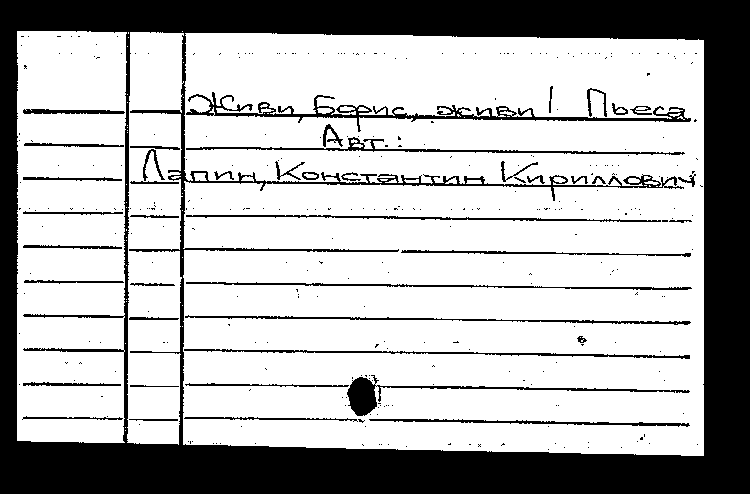 Живи, Борис, живи! Пьеса.
Авт.:
Лапин, Константин Кириллович